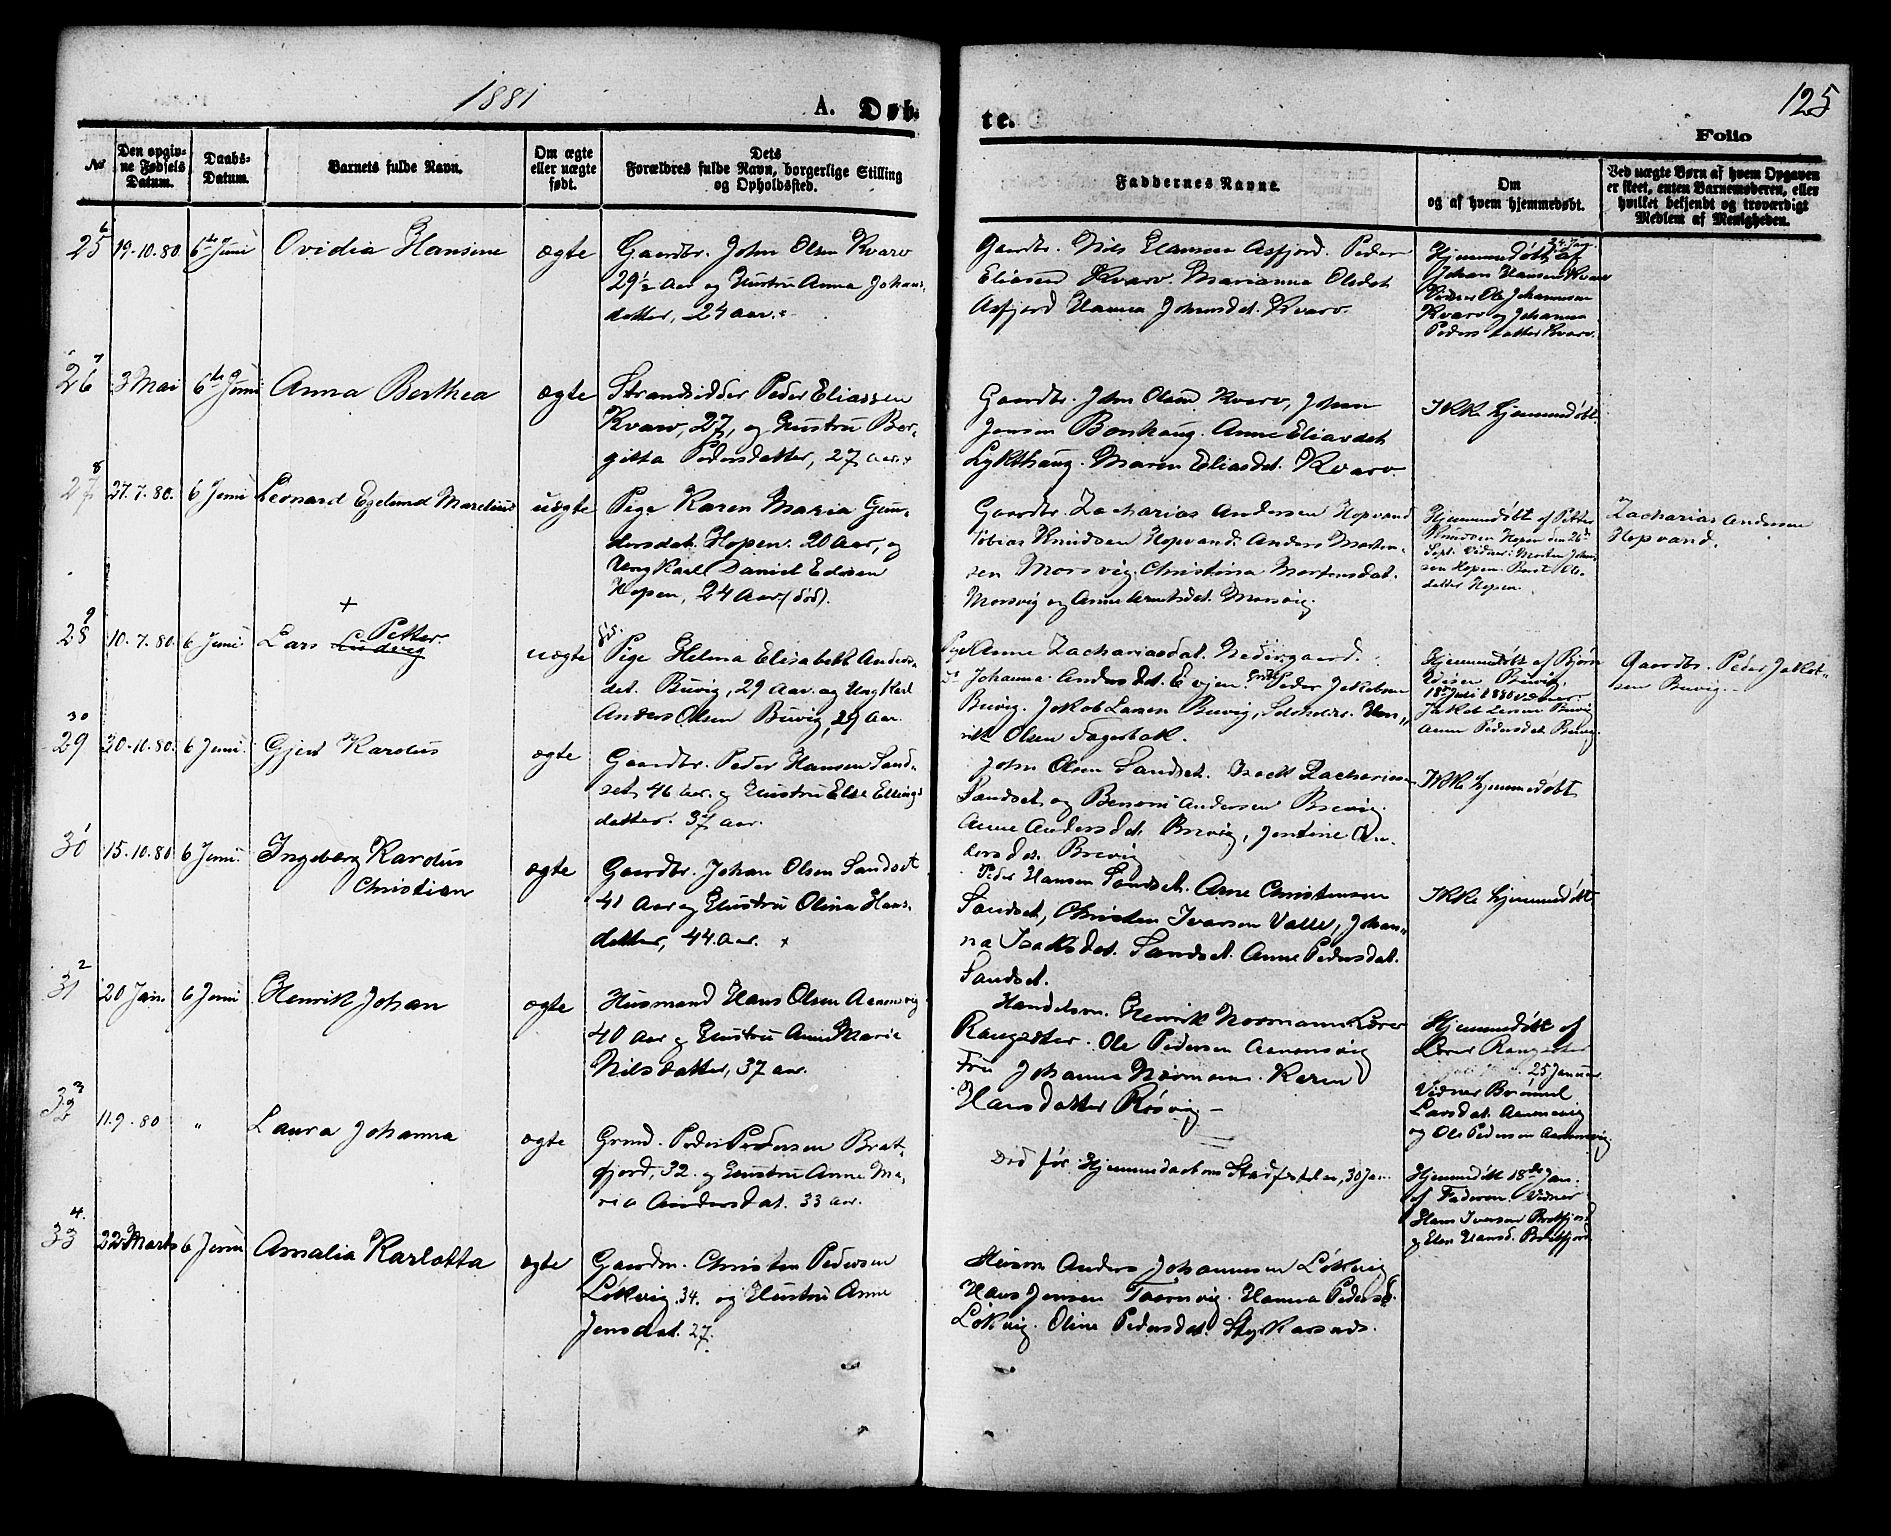 1881 A. Døb- te. 125
Folio
No
Den opgiv-
ne Fødsels
Datum.
Daabs-
Datum.
Barnets fulde Navn.
Om ægte
eller uægte
født.
Dets
Forældres fulde Navn, borgerlige Stilling
og Opholdssted.
Faddernes Navne.
Om
og af hvem hjemmedøbt.
Ved uægte Børn af hvem Opgaven
er skeet, enten Barnemoderen, eller
hvilket bekjendt og troværdigt
Medlem af Menigheden.
25 6
19-10.80.
6te Juni
Ovidia Hansine
ægte
Gaardbr. John Olsen Kvarv
29½ Aar og Hustru Anna Johans-
datter, 24 aar.
Gaardbr. Nils Hansen Asfjord. Peder
Eliasen Kvarv. Marianna Olsdat
Asfjord Hanna Johnsdat. Kvarv.
Hjemmedøbt af
Johan Hansen Kvarv
Vidner Ole Johannesen
Kvarv og Johanna
Pedersdatter Kvarv.
26 7
3 Mai
6te Juni
Anna Berthea
ægte
Strandsidder Peder Eliassen
Kvarv, 27, og Hustru Ber-
gitta Pedersdatter, 27 aar.
Gaardbr. John Olsen Kvarv, Johan
Jensen Bonhaug. Anne Eliasdat
Lykthaug. Maren Eliasdat. Kvarv.
Ikke hjemmedøbt.
27 8
27.7.80.
6 Juni
Leonard Egelund Mardius
uægte
Pige Karen Maria Gun-
dersdat. Hopen. 20 Aar, og
Ungkarl Daniel Edisen
Hopen, 24 Aar (død).
Gaardbr. Zacharias Andersen Hopvand
Tobias Knudsen Hopvand. Anders Morten-
sen Morsvig. Christina Mortensdat.
Morsvig og Anne Arntsdat. Morsvig.
Hjemmedøbt af Petter
Knudsen Hopen den 26de
Sept. Vidner: Morten Johan-
sen Hopen. Berit Ols-
datter Hopen.
Zacharias Andersen
Hopvand.
28 9
10.7.80.
6 Juni
+
Petter
Lars Ludvig
uægte
Pige Helena Elisabeth Anders-
dat. Buvig, 29 Aar og Ungkarl
Anders Olsen Buvig, 29 Aar.
Pige Anne Zachariasdat. Nedregaard.
Do Johanna Andersdat. Evjen. Peder Jakobsen
Buvig. Jakob Larsen Buvig, Hen-
rik Olsen Fagerbak.
Hjemmedøbt af Bjørn
Edisen Buvig.
18de Juli 1880 Vidner
Jakob Larsen Buvig
Anne Pedersdat. Buvig.
Gaardbr. Peder Jakob-
sen Buvig.
29 30
20-10.80.
6 Juni
Gjert Kardus
ægte
Gaardbr. Peder Hansen Sand-
set, 46 aar. og Hustru Else Ellings
datter. 37 aar.
John Olsen Sandset. Isach Zachariasen
Sandset og Benoni Andersen Brevig.
Anne Andersdat. Brevig, Jentine An-
dersdat. Brevig
Ikke hjemmedøbt
30 1
15.10.80
6 Juni.
Ingeberg Kardus
Christian
ægte
Gaardbr. Johan Olsen Sandset
41 Aar og Hustru Olina Hans-
datter, 44 aar.
Peder Hansen Sandset. Arne Christensen
Sandset, Christen Ivarsen Valle, Johan-
na Isaksdat. Sandset. Anne Pedersdat.
Sandset.
Ikke hjemmedøbt
31 2
20 Jan.
6 Juni
Henrik Johan
ægte
Husmand Hans Olsen Aanonsvig
40 Aar og Hustru Anne Marie
Nilsdatter, 37 aar.
Handelsm. Henrik Normann. Lærer
Rangsæter. Ole Pedersen Aanonsvig
Fru Johanna Normann. Karen
Hansdatter Røsvig –
Hjemmedøbt af
Lærer Rangsæter
25 Januar
Vidner
Larsdat. Aanonsvig
og Ole Pedersen Aanonsvig
32 3
11.9.80
"
Laura Johanna
ægte
Grmd. Peder Pedersen Brat-
fjord, 32. og Hustru Anne Ma-
ria Andersdat. 33 aar.
Død før Hjemmedaabens Stadfestelse, 30 Jan.
Hjemmedøbt 18de Jan.
af Faderen. Vidner
Hans Iversen Bratfjord
og Elen Hansd. Bratfjord.
33 4.
22 Marts
6 Juni
Amalia Karlotta
ægte
Gaardm. Christen Pedersen
Løkvig 34. og Hustru Anne
Jensdat. 27.
Husm Anders Johannesen Løkvig
Hans Jensen Taarnvig. Hanna Peders
Løkvig. Oline Pedersdat. Styrkesnes.